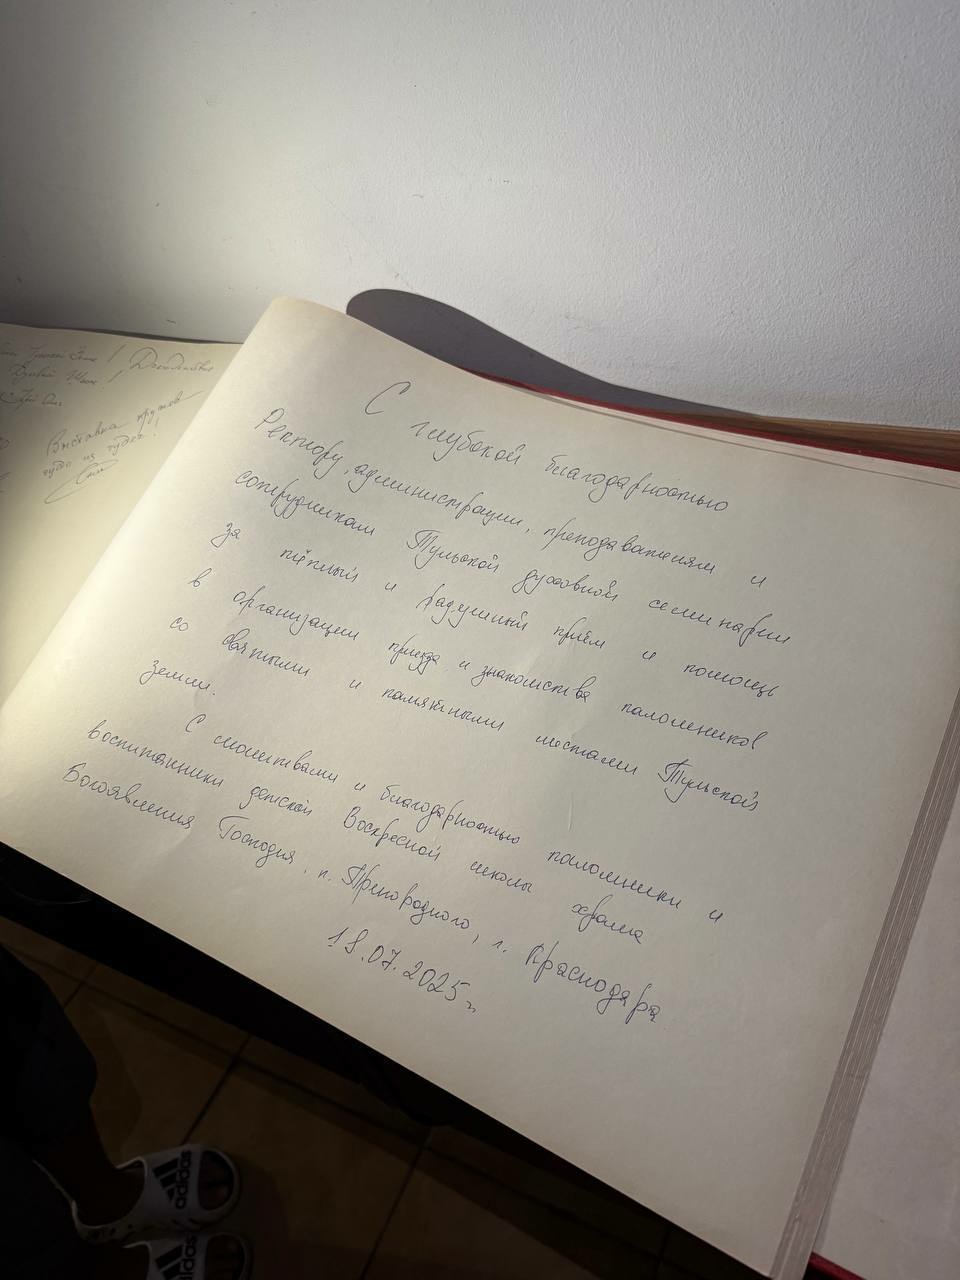 Выставка крутов
чудо из чудес!
С глубокой благодарностью
Ректору, администрации, преподавателям и
сотрудникам Тульской духовной семинарии
за тёплый и радушный приём и помощь
в организации приезда и знакомства паломников
со святыми и памятными местами Тульской
земли.
С молитвами и благодарностью паломники и
воспитанники детской Воскресной школы храма
Богоявления Господня, п. Пригородного, г. Краснодара
18.07.2025 г.
adidas
adidas